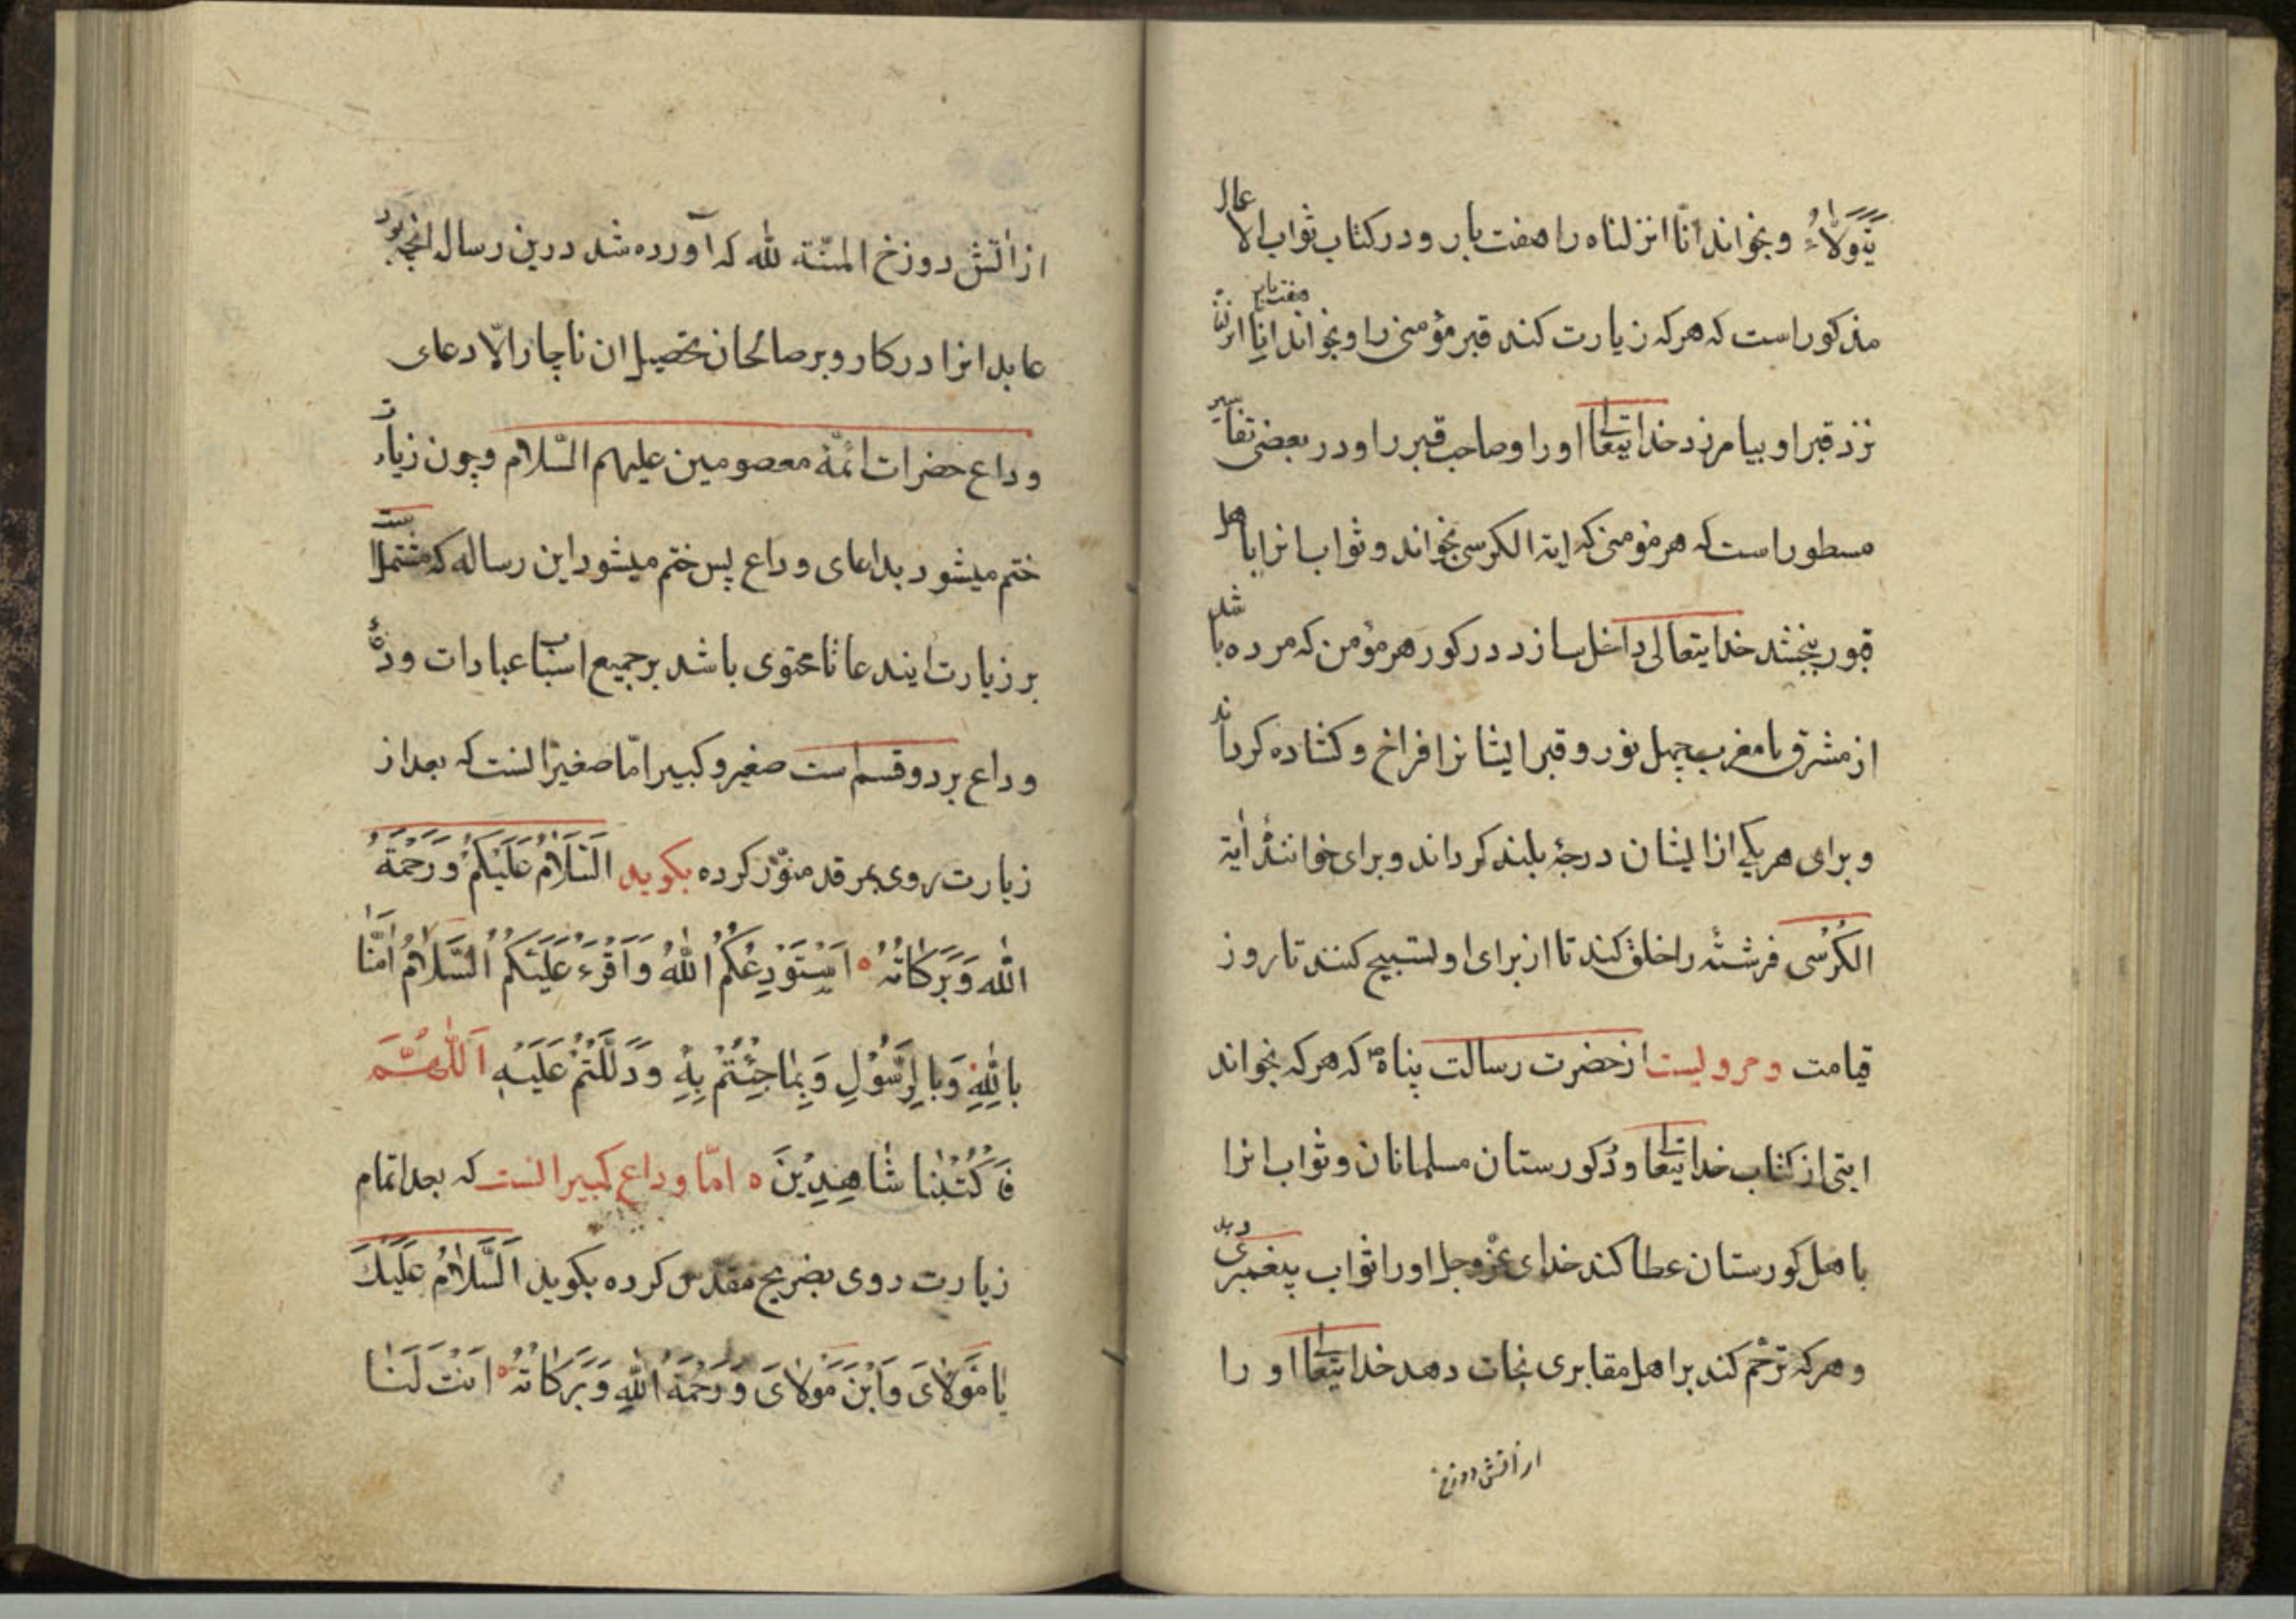 یَتَوَلَّاهُ و بخواند انّا انزلناه را هفت بار و در کتاب ثواب الاعمال
مذکور است که هر که زیارت کند قبر مؤمنی را و بخواند انّا انزلناه هفت بار
نزد قبر او بیامرزد خدایتعالی او را و صاحب قبر را و در بعضی تفاسیر
مسطور است که هر مؤمنی که ایة الکرسی بخواند و ثواب انرا باهل
قبور بخشد خدایتعالی داخل سازد در کور هر مؤمن که مرده باشد
از مشرق تا مغرب چهل نور و قبر ایشانرا فراخ و کشاده کرداند
و برای هر یکی از ایشان درجهٔ بلند کرداند و برای خوانندهٔ ایة
الکُرْسی فرشتهٔ را خلق کند تا از برای او تسبیح کنند تا روز
قیامت و مرویست از حضرت رسالت پناه ص که هر که بخواند
ایتی از کتاب خدایتعالی در کورستان مسلمانان و ثواب انرا
باهل کورستان عطا کند خدای عزّوجل او را ثواب پیغمبری دهد
و هر که ترحّم کند بر اهل مقابری نجات دهد خدایتعالی او را
از اتش دوزخ
از اتش دوزخ المنّة لله که آورده شد درین رساله انچه بود
عابدانرا در کار و بر صالحان تحصیل ان ناچار الّا دعای
وداع حضرات ائمّهٔ معصومین علیهم السّلام و چون زیارت
ختم میشود بدعای وداع پس ختم میشود این رساله که مشتمل است
بر زیارت ایندعا تا محتوی باشد بر جمیع اسباب عبادات و
وداع بر دو قسم است صغیر و کبیر امّا صغیر انست که بعد از
زیارت روی بمرقد منوّر کرده بکوید اَلسَّلَامُ عَلَیْکُمْ وَرَحْمَةُ
اللّٰهِ وَبَرَکَاتُهُ اَسْتَوْدِعُکُمُ اللّٰهَ وَاَقْرَءُ عَلَیْکُمُ السَّلَامُ اٰمَنَّا
بِاللّٰهِ وَبِالرَّسُوْلِ وَبِمَا جِئْتُمْ بِهِ وَدَلَلْتُمْ عَلَیْهِ اَللّٰهُمَّ
فَاکْتُبْنَا شَاهِدِیْنَ امّا وداع کبیر انست که بعد اتمام
زیارت روی بضریح مقدس کرده بکوید اَلسَّلَامُ عَلَیْكَ
یَا مَوْلَایَ وَابْنَ مَوْلَایَ وَرَحْمَةُ اللّٰهِ وَبَرَکَاتُهُ اَنْتَ لَنَا